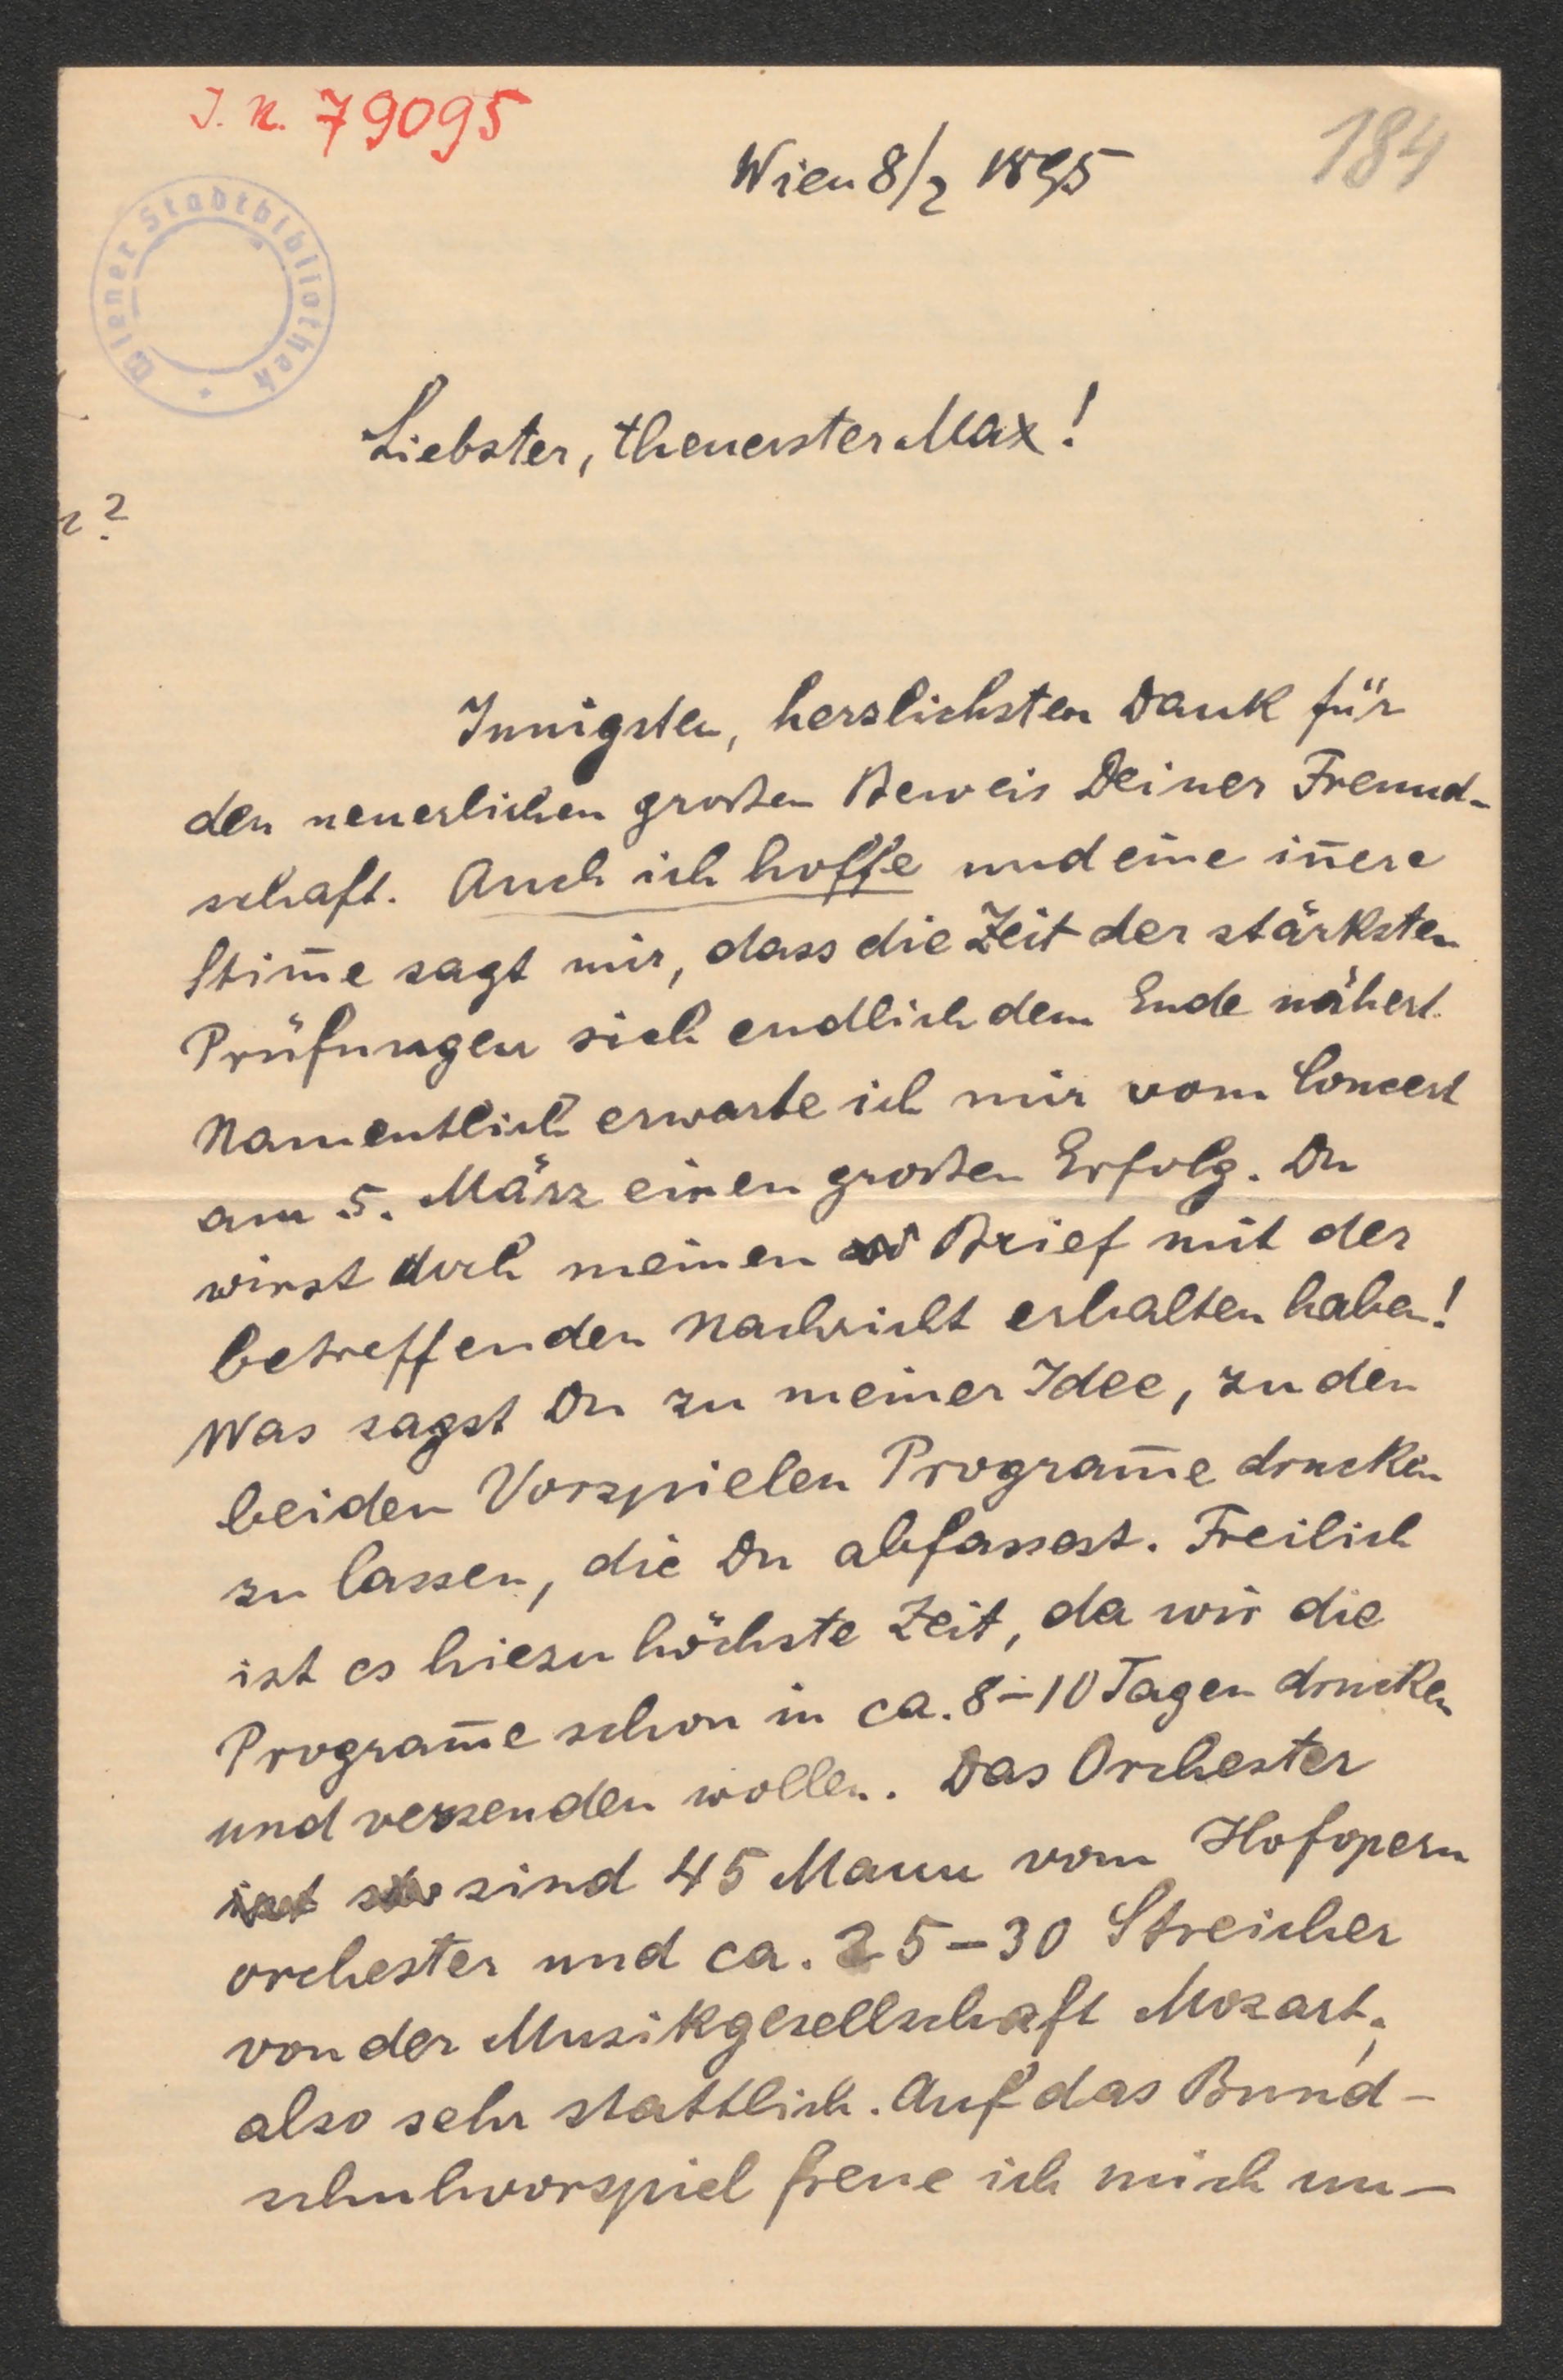 J. N. 79095
184
Wien 8/2 1895
Wiener Stadtbibliothek
Liebster, theuerster Max!
?
Innigsten, herzlichsten Dank für
den neuerlichen großen Beweis Deiner Freund-
schaft. Auch ich hoffe und eine in̄ere
Stim̄e sagt mir, dass die Zeit der stärksten
Prüfungen sich endlich dem Ende nähert.
Namentlich erwarte ich mir vom Concert
am 5. März einen großen Erfolg. Du
wirst doch meinen Brief mit der
betreffenden Nachricht erhalten haben!
Was sagst Du zu meiner Idee, zu den
beiden Vorspielen Program̄e drucken
zu lassen, die Du abfassest. Freilich
ist es hiezu höchste Zeit, da wir die
Program̄e schon in ca. 8–10 Tagen drucken
und versenden wollen. Das Orchester
ist sind 45 Mann vom Hofopern
orchester und ca. 25–30 Streicher
von der Musikgesellschaft Mozart,
also sehr stattlich. Auf das Bund-
schuhvorspiel freue ich mich un-